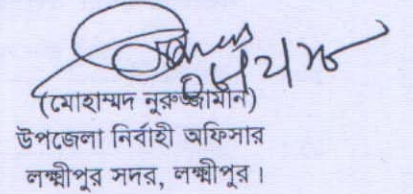 (মোহাম্মদ নুরুজ্জামান)
উপজেলা নির্বাহী অফিসার
লক্ষ্মীপুর সদর, লক্ষ্মীপুর।